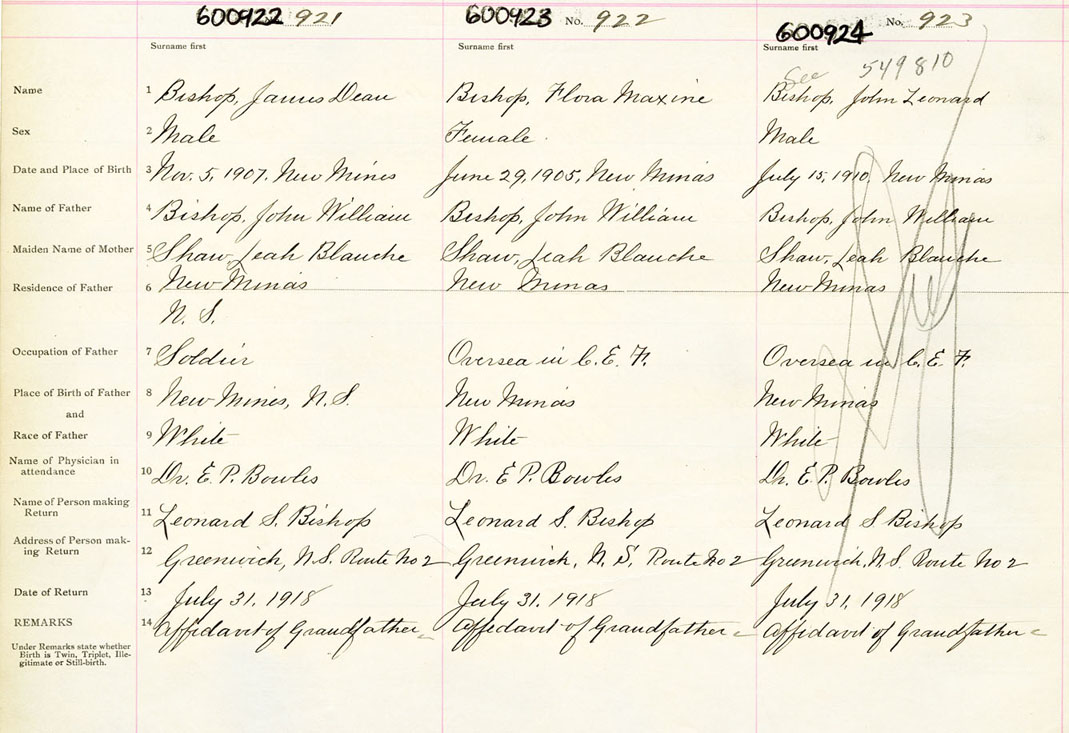 600922 921 600923 No. 922 600924 No. 923
Surname first Surname first Surname first
See 549810
Name 1 Bishop, James Dean Bishop, Flora Maxine Bishop, John Leonard
Sex 2 Male Female Male
Date and Place of Birth 3 Nov. 5, 1907, New Mines June 29, 1905, New Minas July 15, 1910, New Minas
Name of Father 4 Bishop, John William Bishop, John William Bishop, John William
Maiden Name of Mother 5 Shaw, Leah Blanche Shaw, Leah Blanche Shaw, Leah Blanche
Residence of Father 6 New Minas New Minas New Minas
N. S.
Occupation of Father 7 Soldier Oversea in C. E. F. Oversea in C. E. F.
Place of Birth of Father 8 New Mines, N. S. New Minas New Minas
and
Race of Father 9 White White White
Name of Physician in
attendance 10 Dr. E. P. Bowles Dr. E P. Bowles Dr. E P. Bowles
Name of Person making
Return 11 Leonard S. Bishop Leonard S. Bishop Leonard S Bishop
Address of Person mak-
ing Return 12 Greenwich, N. S. Route No 2 Greenwich, N. S, Route No 2 Greenwich, N. S. Route No 2
Date of Return 13 July 31, 1918 July 31, 1918 July 31, 1918
REMARKS 14 Affidavit of Grandfather Affidavit of Grandfather Affidavit of Grandfather
Under Remarks state whether
Birth is Twin, Triplet, Ille-
gitimate or Still-birth.